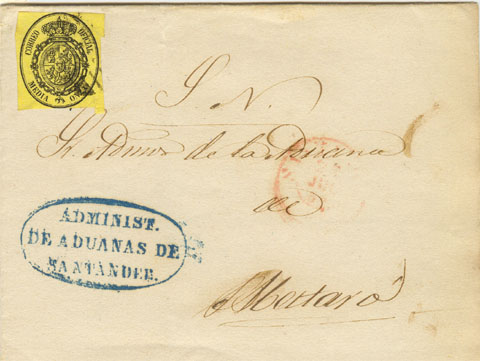 CORREO OFICIAL
MEDIA ONZA
S. N.
Sr. Admor de la Aduana
de
Mataró
ADMINIST.
DE ADUANAS DE
SANTANDER.